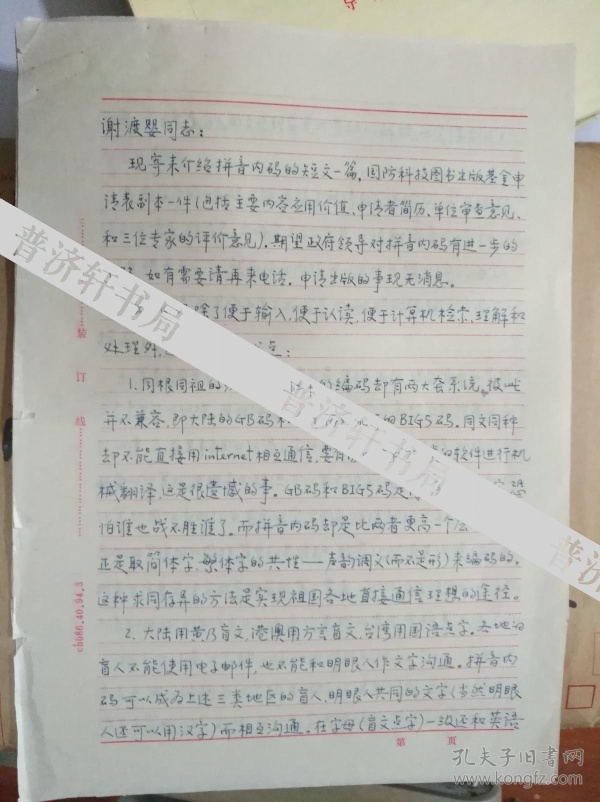 谢渡婴同志：
现寄来介绍拼音内码的短文一篇，国防科技图书出版基金申
请表副本一件（包括主要内容应用价值、申请者简历、单位审查意见、
和三位专家的评价意见）。期望政府领导对拼音内码有进一步的
如有需要请再来电话。申请出版的事现无消息。
除了便于输入，便于认读，便于计算机检索、理解和
处理外，
1. 同根同祖的 的编码却有两大套系统，彼此
并不兼容，即大陆的GB码和 的BIG5码。同文同种
却不能直接用internet相互通信，要有 软件进行机
械翻译，这是很遗憾的事。GB码和BIG5码是
怕谁也战不胜谁了。而拼音内码却是比两者更高一个
正是取简体字、繁体字的共性——声韵调文（而不是形）来编码的。
这种求同存异的方法是实现祖国各地直接通信理想的途径。
2. 大陆用黄乃盲文，港澳用方言盲文，台湾用国语点字。各地的
盲人不能使用电子邮件，也不能和明眼人作文字沟通。拼音内
码可以成为上述三类地区的盲人、明眼人共同的文字（当然明眼
人还可以用汉字）而相互沟通。在字母（盲文点字）一级还和英语
第 页
装 订 线
ch086.40.94.3
普济轩书局
普济轩书局
普济
孔夫子旧书网
www.kongfz.com